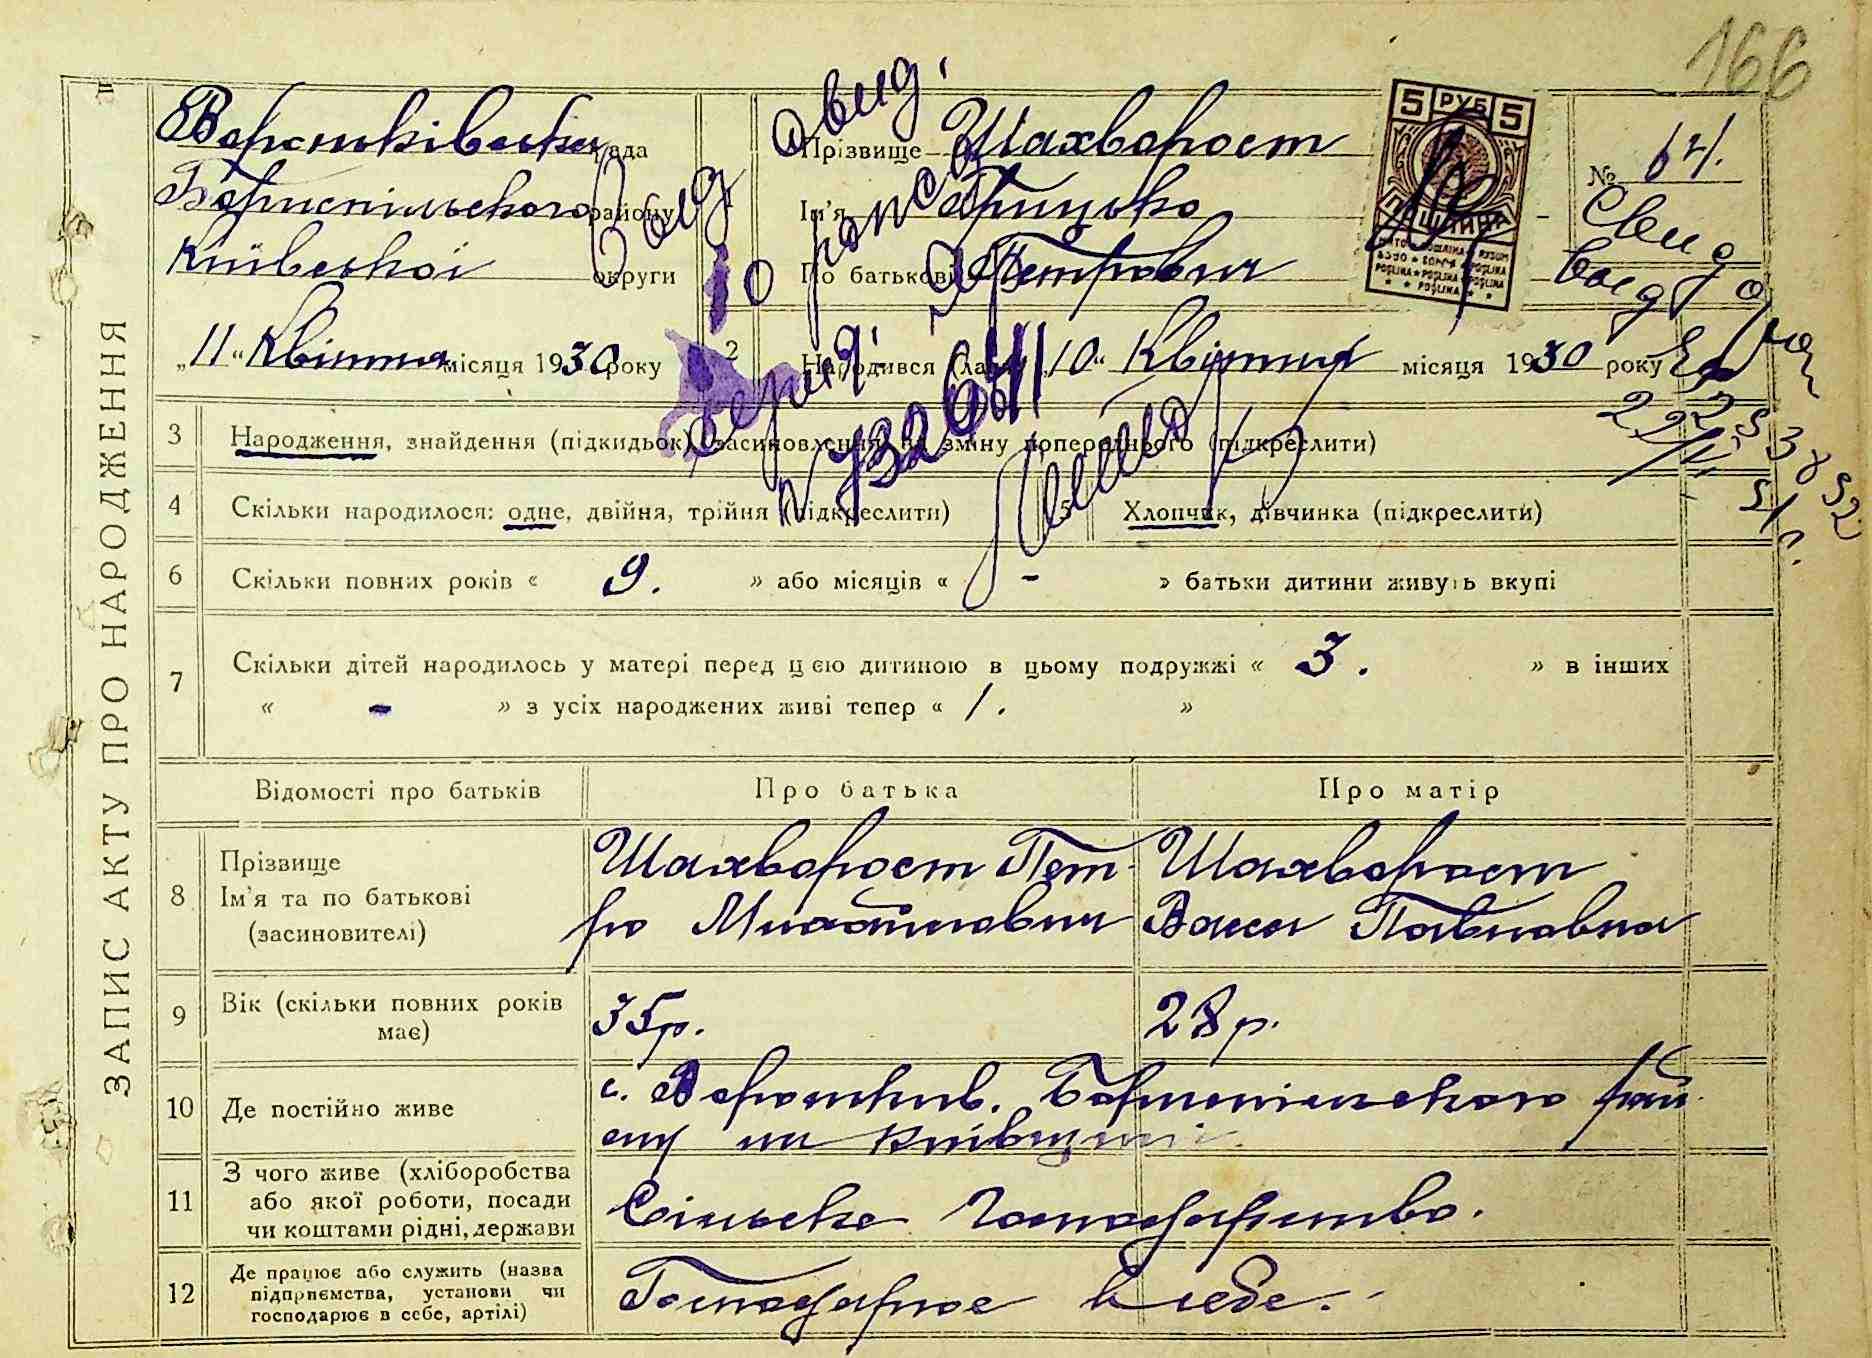 166
Вороньківська рада
Бориспільського району
Київської округи
„11“ Квітня місяця 1930 року
Прізвище Шахворост
Ім'я Грицько
По батькові Петрович
2 Народився (лась) „10“ Квітня місяця 1930 року
5 РУБ 5
№ 64.
Свид
выд
ЗАПИС АКТУ ПРО НАРОДЖЕННЯ
3 Народження, знайдення (підкидьок), засиновлення, на зміну попереднього (підкреслити)
4 Скільки народилося: одне, двійня, трійня (підкреслити) 5 Хлопчик, дівчинка (підкреслити)
6 Скільки повних років « 9. » або місяців « - » батьки дитини живуть вкупі
7 Скільки дітей народилось у матері перед цією дитиною в цьому подружжі « 3. » в інших
« - » з усіх народжених живі тепер « 1. »
Відомості про батьків Про батька Про матір
8 Прізвище Ім'я та по батькові (засиновителі)
Шахворост Пет-
ро Михайлович
Шахворост
Васса Павловна
9 Вік (скільки повних років має) 35 р. 28 р.
10 Де постійно живе с. Вороньків. Бориспільського рай-
ону на Київщині.
11 З чого живе (хліборобства
або якої роботи, посади
чи коштами рідні, держави
Сільске Господарство.
12 Де працює або служить (назва
підприємства, установи чи
господарює в себе, артілі)
Господарює в себе.